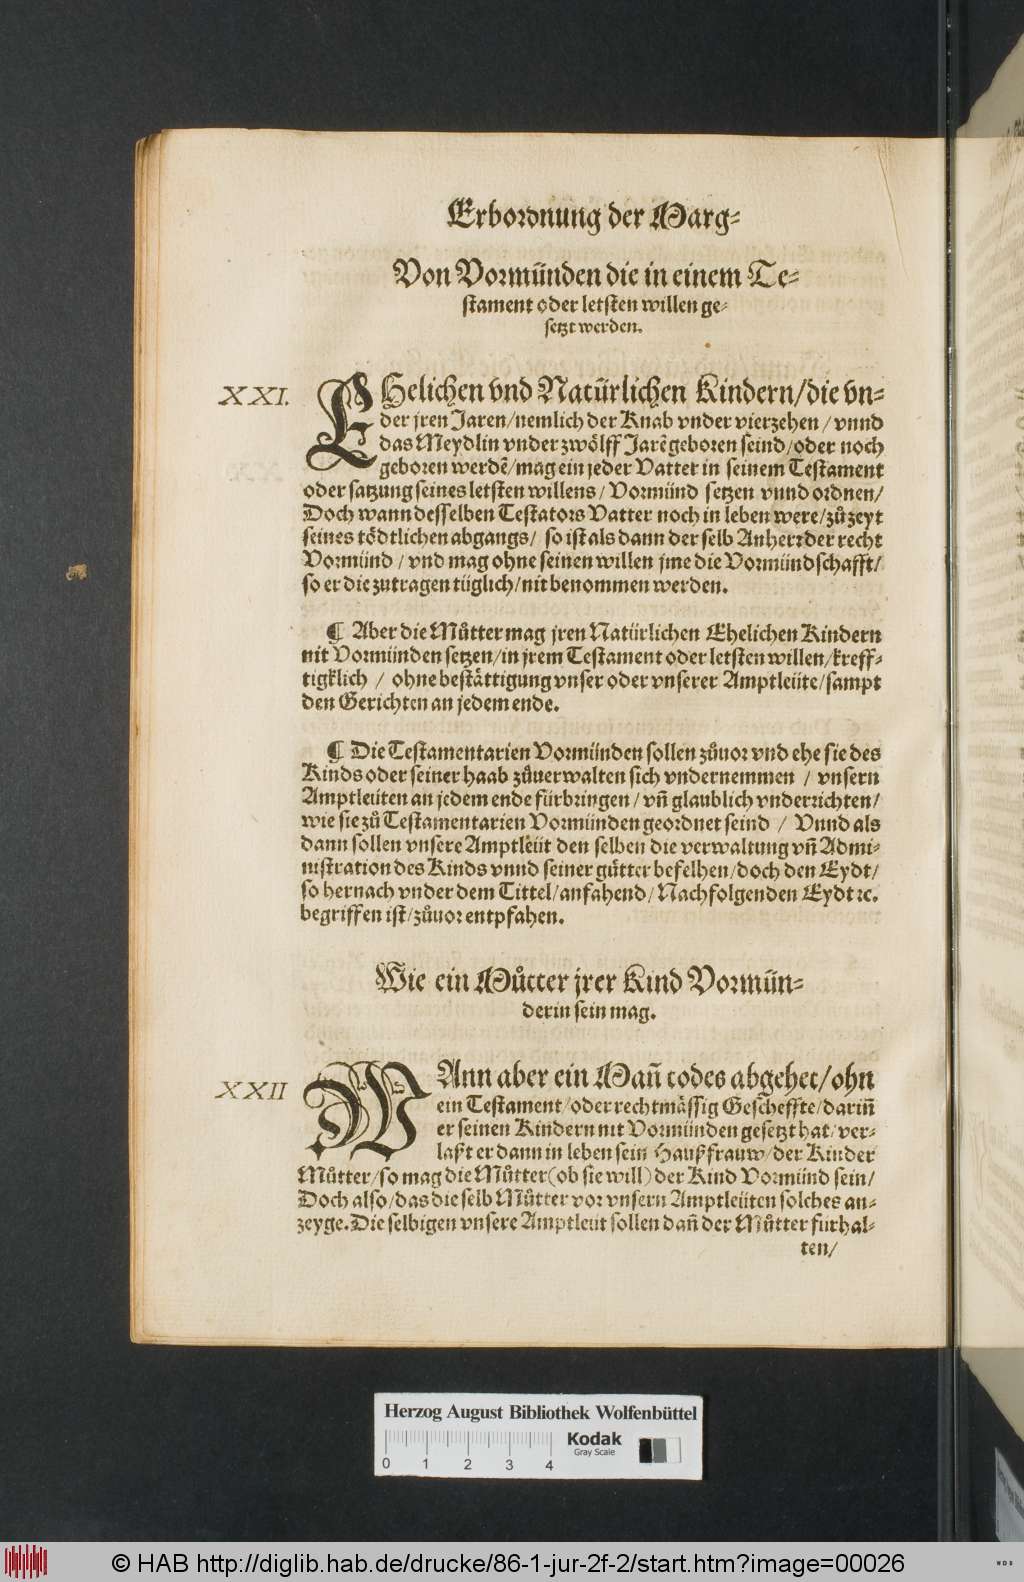 Erbordnung der Marg-
Von Vormünden die in einem Te-
stament oder letsten willen ge-
setzt werden.
XXI.
EHelichen vnd Natürlichen Kindern/die vn-
der jren Jaren/nemlich der Knab vnder vierzehen / vnnd
das Meydlin vnder zwölff Jarẽ geboren seind/oder noch
geboren werdẽ/mag ein jeder Vatter in seinem Testament
oder satzung seines letsten willens/ Vormünd setzen vnnd ordnen/
Doch wann desselben Testators Vatter noch in leben were/zů zeyt
seines tödtlichen abgangs/ so ist als dann der selb Anherr der recht
Vormünd / vnd mag ohne seinen willen jme die Vormündschafft/
so er die zutragen tüglich/nit benommen werden.
¶ Aber die Můtter mag jren Natürlichen Ehelichen Kindern
nit Vormünden setzen/in jrem Testament oder letsten willen/kreff-
tigklich / ohne bestättigung vnser oder vnserer Amptleüte/sampt
den Gerichten an jedem ende.
¶ Die Testamentarien Vormünden sollen zůuor vnd ehe sie des
Kinds oder seiner haab zůuerwalten sich vndernemmen / vnsern
Amptleüten an jedem ende fürbringen/ vñ glaublich vnderrichten/
wie sie zů Testamentarien Vormünden geordnet seind / Vnnd als
dann sollen vnsere Amptleüt den selben die verwaltung vñ Admi-
nistration des Kinds vnnd seiner gütter befelhen/doch den Eydt/
so hernach vnder dem Tittel/anfahend/Nachfolgenden Eydt ꝛc.
begriffen ist/zůuor entpfahen.
Wie ein Můtter jrer Kind Vormün-
derin sein mag.
XXII
WAnn aber ein Mañ todes abgehet/ohn
ein Testament/oder rechtmässig Gescheffte/dariñ
er seinen Kindern nit Vormünden gesetzt hat/ver-
laßt er dann in leben sein Haußfrauw/der Kinder
Můtter/so mag die Můtter(ob sie will)der Kind Vormünd sein/
Doch also/das die selb Můtter vor vnsern Amptleüten solches an-
zeyge. Die selbigen vnsere Amptleüt sollen dañ der Můtter fürhal-
ten/
Herzog August Bibliothek Wolfenbüttel
Kodak
Gray Scale
0 1 2 3 4
© HAB http://diglib.hab.de/drucke/86-1-jur-2f-2/start.htm?image=00026